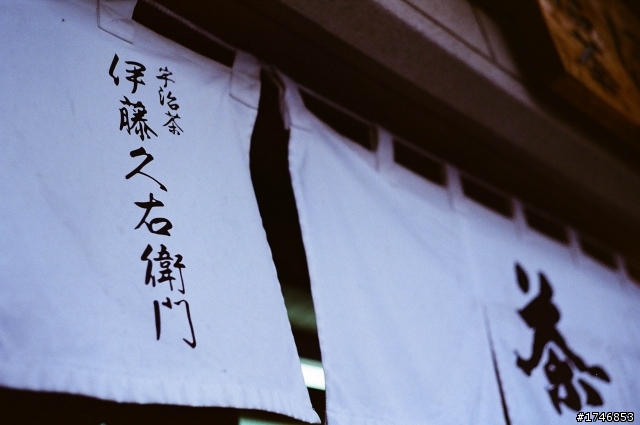 宇治茶
伊藤久右衛門
茶
#1746853